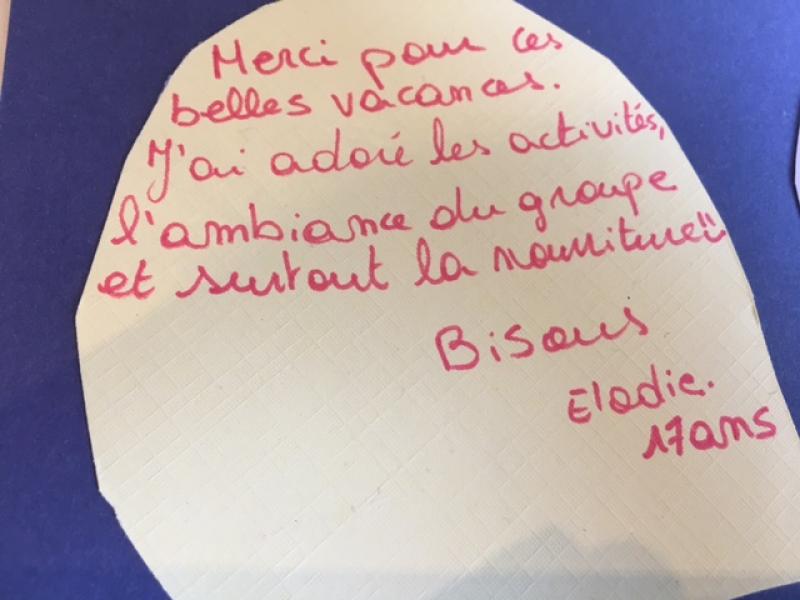 Merci pour ces
belles vacances.
J'ai adoré les activités,
l'ambiance du groupe
et surtout la nourriture
Bisous
Elodie.
17 ans